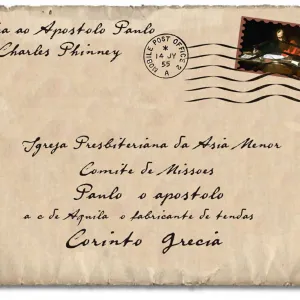 ta ao Apostolo Paulo
Charles Phinney
MOBILE POST OFFICE 2
14 JY
55
A
Igreja Presbiteriana da Asia Menor
Comite de Missoes
Paulo o apostolo
a c de Aquila o fabricante de tendas
Corinto Grecia